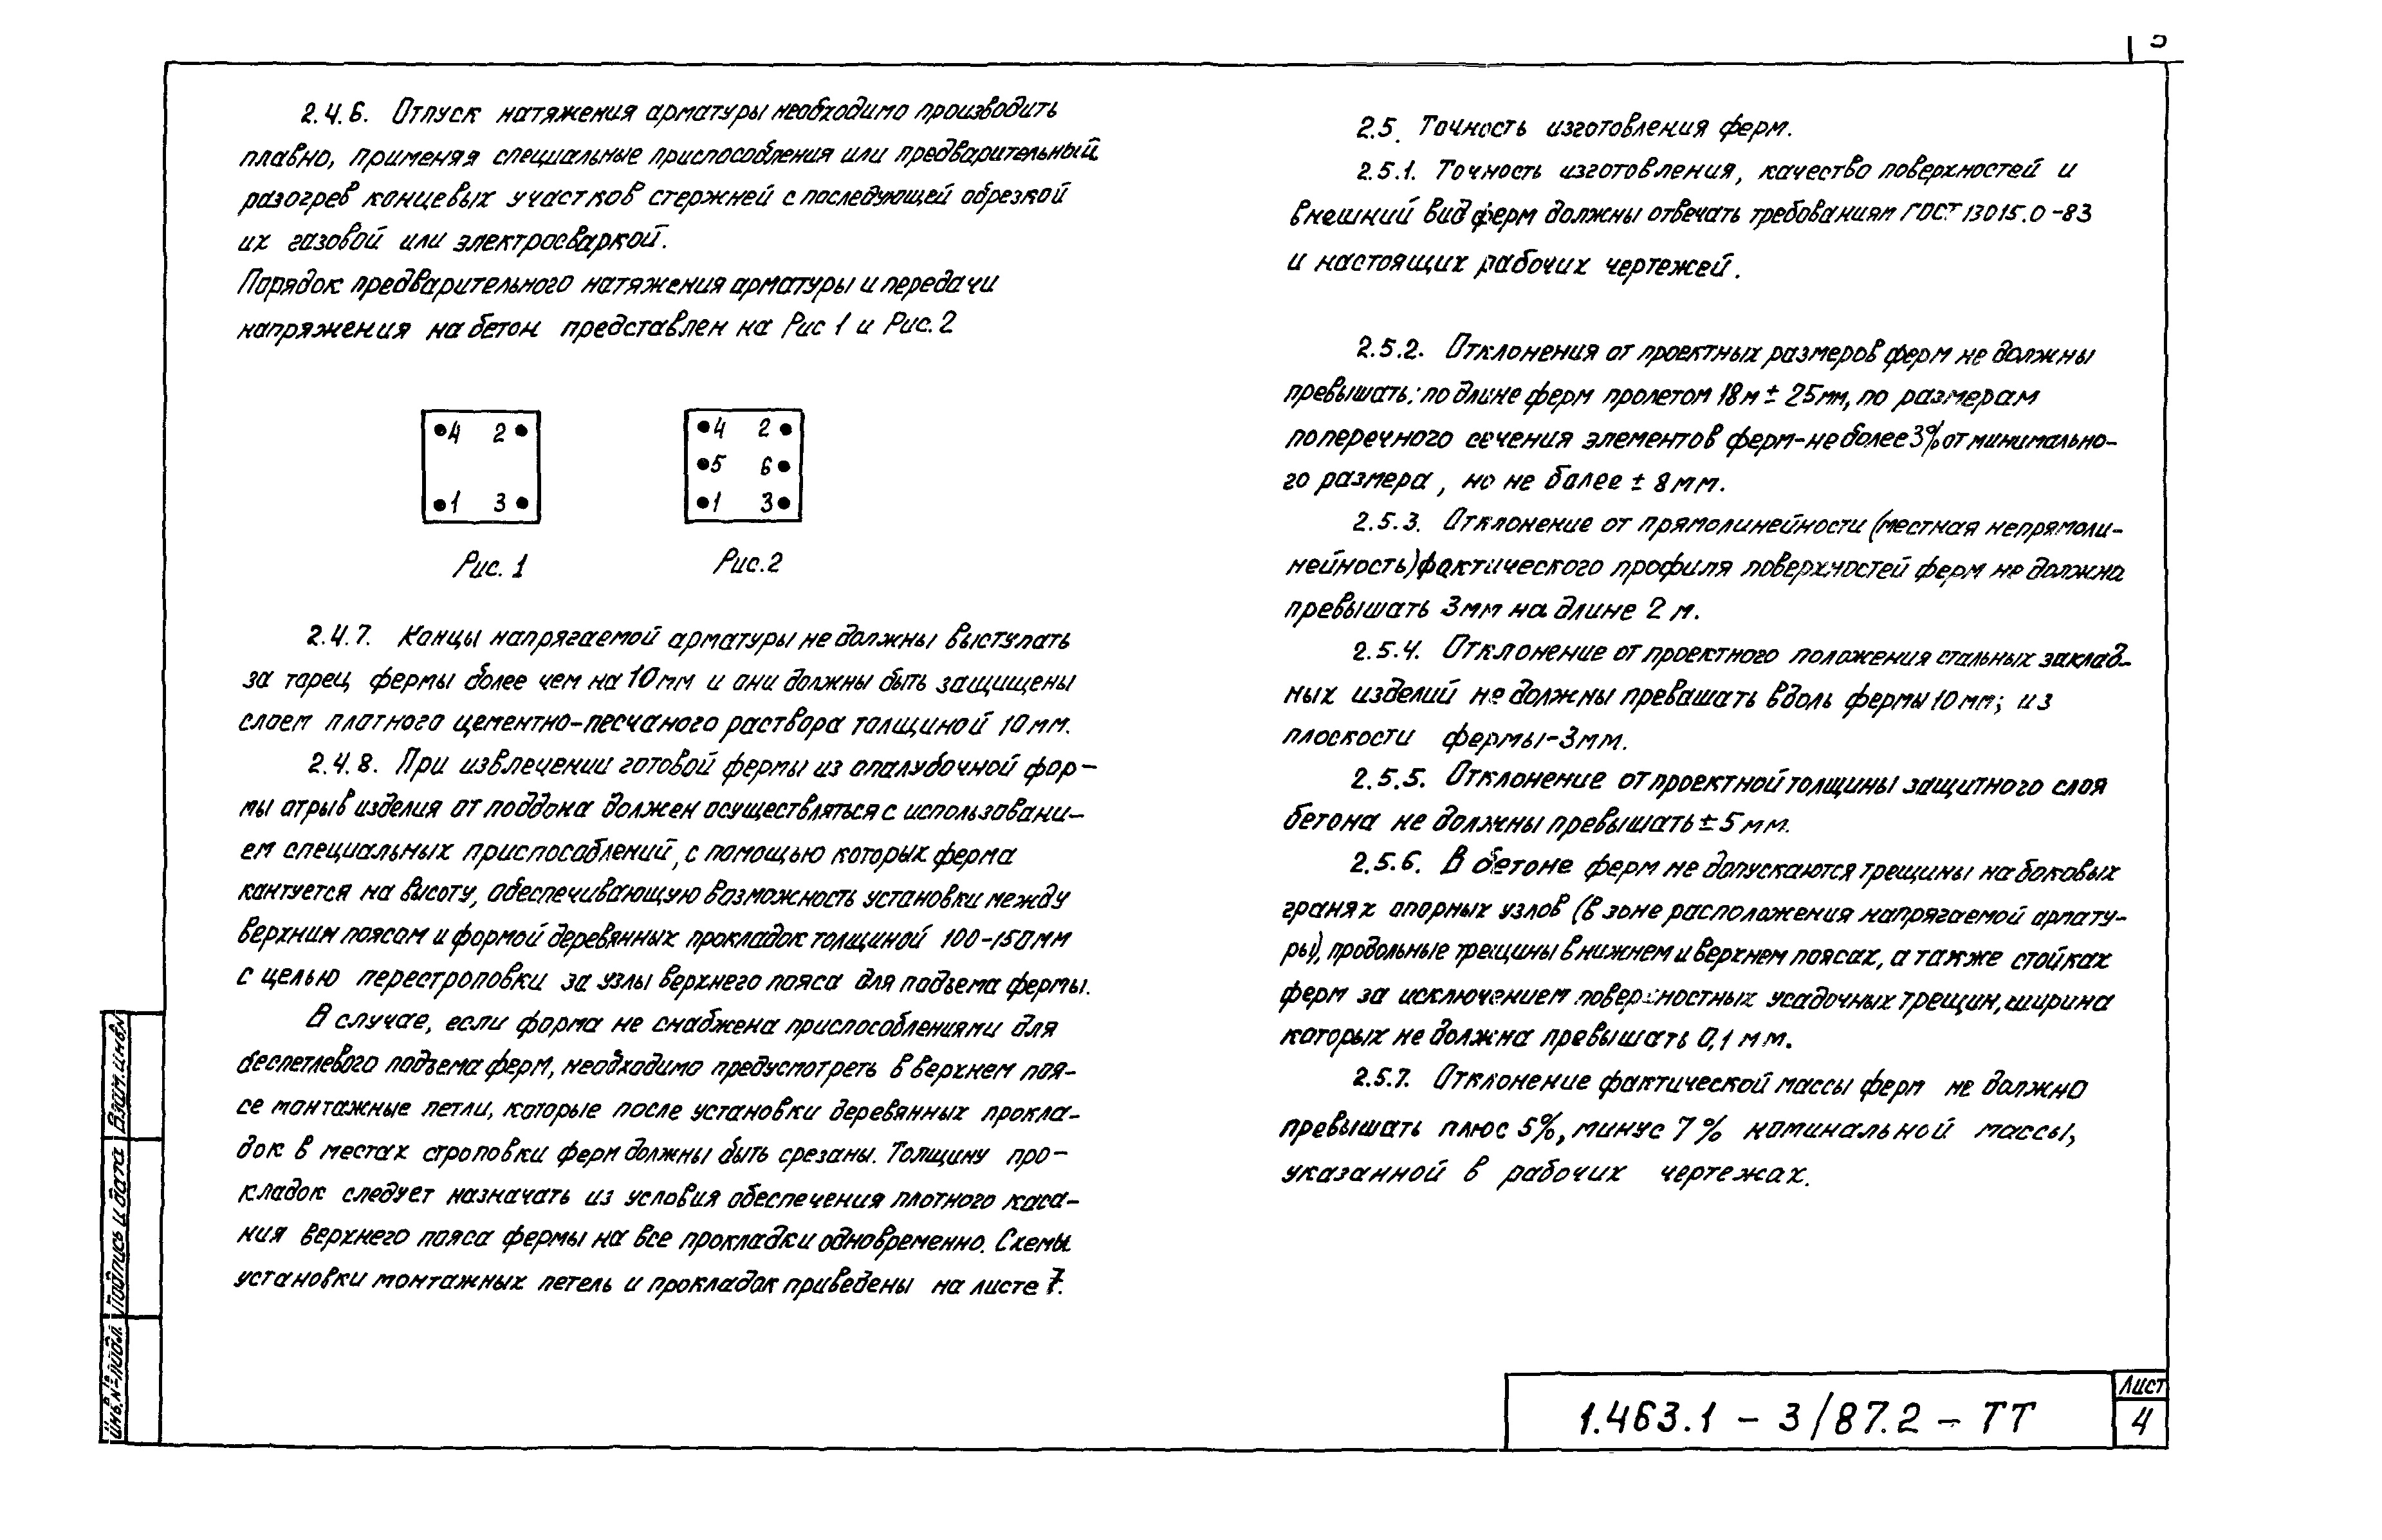 2.4.6. Отпуск натяжения арматуры необходимо производить
плавно, применяя специальные приспособления или предварительный
разогрев концевых участков стержней с последующей обрезкой
их газовой или электросваркой.
Порядок предварительного натяжения арматуры и передачи
напряжения на бетон представлен на Рис 1 и Рис. 2
4 2
1 3
Рис. 1
4 2
5 6
1 3
Рис. 2
2.4.7. Концы напрягаемой арматуры не должны выступать
за торец фермы более чем на 10 мм и они должны быть защищены
слоем плотного цементно-песчаного раствора толщиной 10 мм.
2.4.8. При извлечении готовой фермы из опалубочной фор-
мы отрыв изделия от поддона должен осуществляться с использовани-
ем специальных приспособлений, с помощью которых ферма
кантуется на высоту, обеспечивающую возможность установки между
верхним поясом и формой деревянных прокладок толщиной 100-150 мм
с целью перестроповки за узлы верхнего пояса для подъема фермы.
В случае, если форма не снабжена приспособлениями для
беспетлевого подъема ферм, необходимо предусмотреть в верхнем поя-
се монтажные петли, которые после установки деревянных прокла-
док в местах строповки ферм должны быть срезаны. Толщину про-
кладок следует назначать из условия обеспечения плотного каса-
ния верхнего пояса фермы на все прокладки одновременно. Схемы
установки монтажных петель и прокладок приведены на листе 7.
2.5. Точность изготовления ферм.
2.5.1. Точность изготовления, качество поверхностей и
внешний вид ферм должны отвечать требованиям ГОСТ 13015.0-83
и настоящих рабочих чертежей.
2.5.2. Отклонения от проектных размеров ферм не должны
превышать: по длине ферм пролетом 18 м ± 25 мм, по размерам
поперечного сечения элементов ферм-не более 3% от минимально-
го размера, но не более ± 8 мм.
2.5.3. Отклонение от прямолинейности (местная непрямоли-
нейность) фактического профиля поверхностей ферм не должна
превышать 3 мм на длине 2 м.
2.5.4. Отклонение от проектного положения стальных заклад-
ных изделий не должны превашать вдоль фермы 10 мм; из
плоскости фермы-3мм.
2.5.5. Отклонение от проектной толщины защитного слоя
бетона не должны превышать ± 5 мм.
2.5.6. В бетоне ферм не допускаются трещины на боковых
гранях опорных узлов (в зоне расположения напрягаемой армату-
ры), продольные трещины в нижнем и верхнем поясах, а также стойках
ферм за исключением поверхностных усадочных трещин, ширина
которых не должна превышать 0,1 мм.
2.5.7. Отклонение фактической массы ферм не должно
превышать плюс 5%, минус 7% номинальной массы,
указанной в рабочих чертежах.
Взам.инв.№
Подпись и дата
Инв.№подл.
1.463.1 - 3/87.2 - ТТ
Лист
4